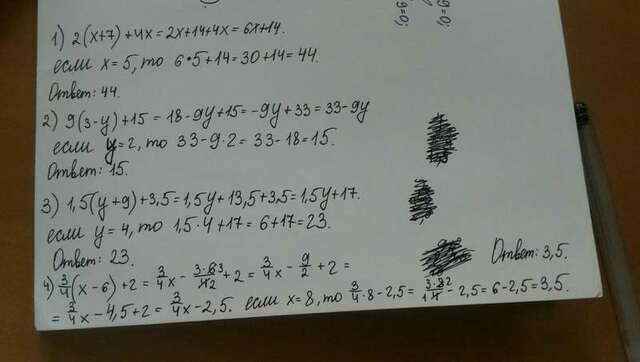 y=0;
y=0;
1) 2(x+7)+4x=2x+14+4x=6x+14.
если x=5, то 6•5+14=30+14=44.
Ответ: 44.
2) 9(3-y)+15=18-9y+15=-9y+33=33-9y
если y=2, то 33-9·2=33-18=15.
Ответ: 15.
3) 1,5(y+9)+3,5=1,5y+13,5+3,5=1,5y+17.
если y=4, то 1,5·4+17=6+17=23.
Ответ: 23.
4) 3/4(x-6)+2=3/4x-3·6 3/4 2+2=3/4x-9/2+2=
=3/4x-4,5+2=3/4x-2,5. если x=8, то 3/4·8-2,5=3·8 2/1 4-2,5=6-2,5=3,5.
Ответ: 3,5.